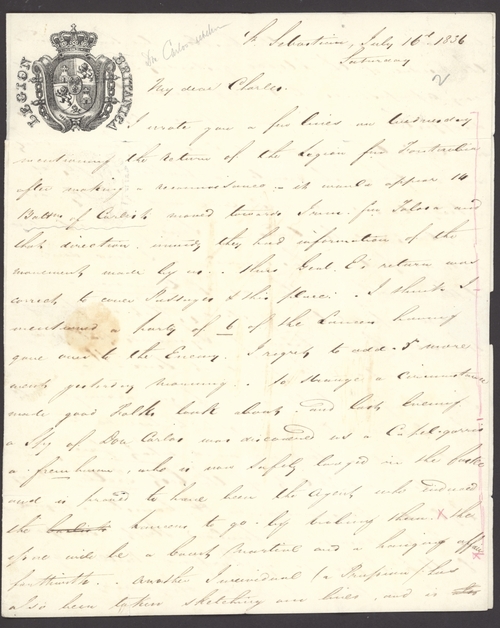 LEGION BRITANICA
St Sebastian, July 16th 1836
Saturday
2
My dear Charles.
I wrote you a few lines on Wednesday
mentioning the return of the Legion from Fontarabia
after making a reconnoissance. it would appear 14
Battns of Carlists moved towards Irun from Tolosa and
that direction. immedy they had information of the
movement made by us. thus Genl. E's return was
correct to cover Passages & this place. I think I
mentioned a party of 6 of the Lancers having
gone over to the Enemy. I regret to add 5 more
went yesterday morning. so strange a circumstance
made good folks look about, and last Evening
a Spy of Don Carlos was discovered as a Chapelgorri
a frenchman, who is now safely lodged in the
and is proved to have been the Agent who induced
the Lancers to go by bribing them. there
will be a Court Martial and a hanging affair
forthwith. Another Individual (a Prussian) has
also been taken sketching our lines, and is